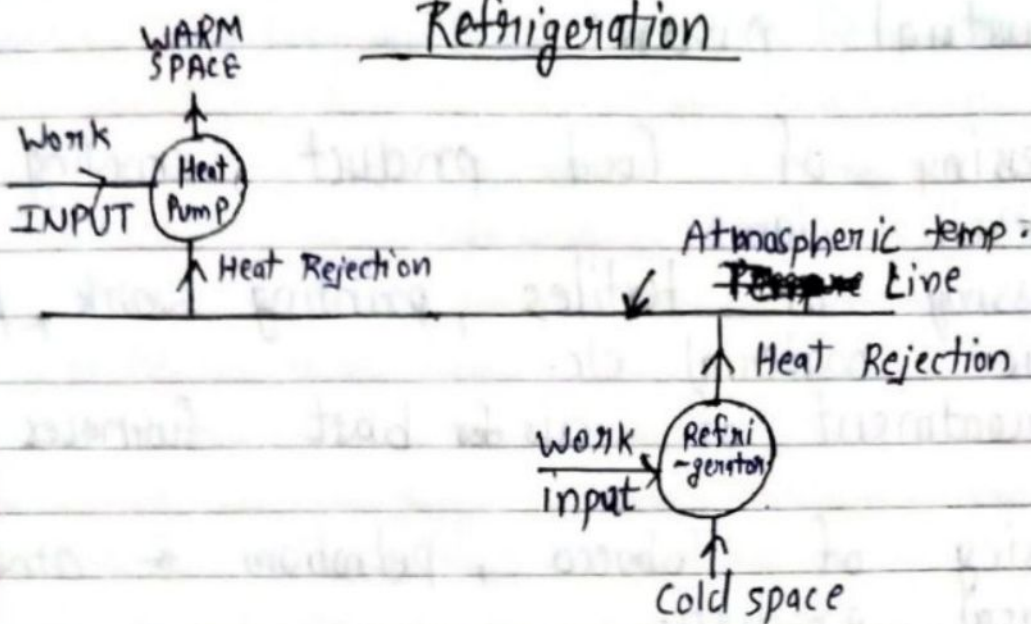 Refrigeration
WARM
SPACE
Work
INPUT
Heat
Pump
Heat Rejection
Atmospheric temp.
Line
Heat Rejection
Work
input
Refri
-gerator
Cold space